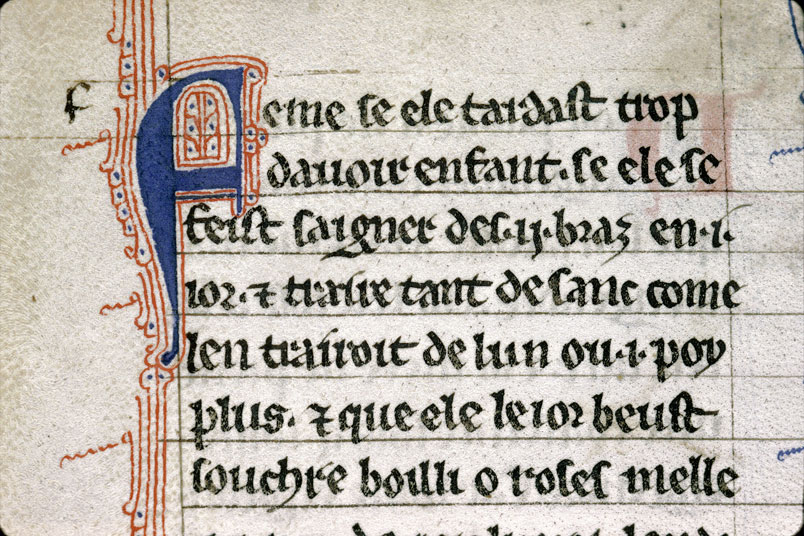 f
Feme se ele tardast trop
dauoir enfant. se ele se
feist saigner des .ij. braz en .i.
ior. ⁊ traire tant de sanc come
len trairoit de lun ou .i. poy
plus. ⁊ que ele le ior beust
souchre boilli o roses melle